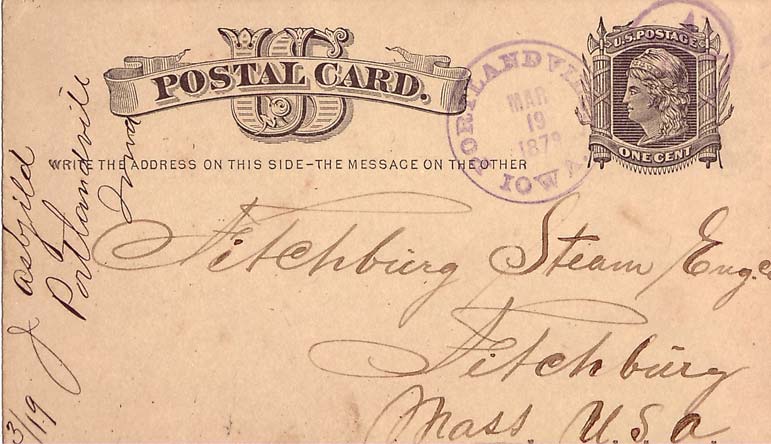 POSTAL CARD.
PORTLANDVILLE
MAR
19
IOWA.
U.S. POSTAGE
ONE CENT
WRITE THE ADDRESS ON THIS SIDE–THE MESSAGE ON THE OTHER
Fitchburg Steam Eng. Co
Fitchburg
Mass. U.S.a
Portlandville
Iowa
3/19